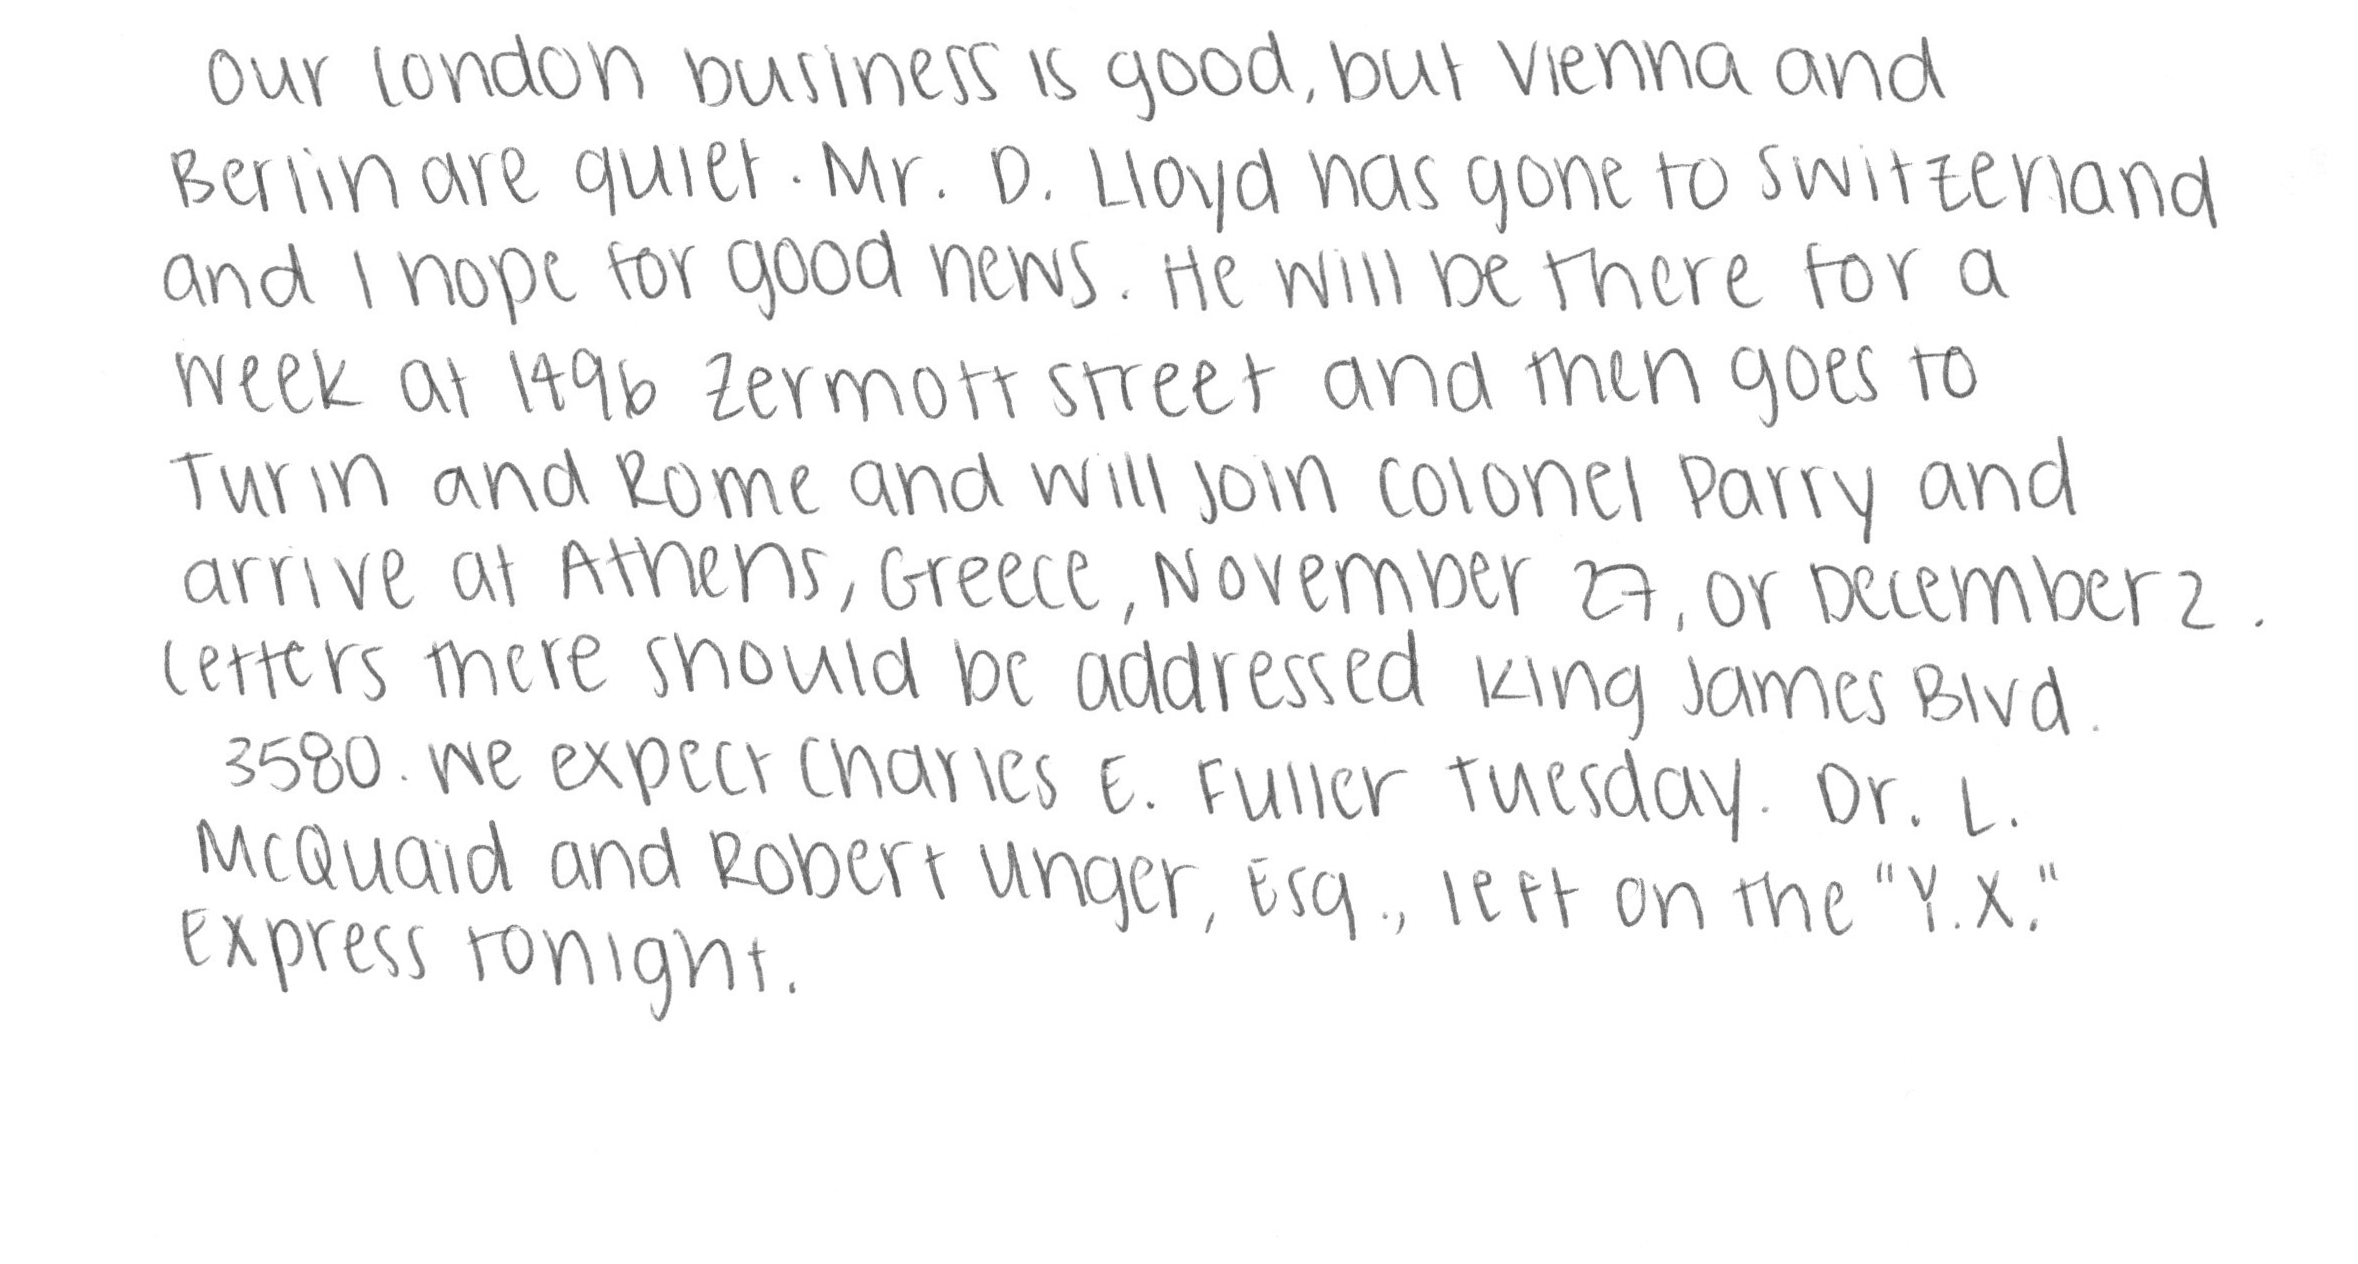 Our London business is good, but Vienna and
Berlin are quiet. Mr. D. Lloyd has gone to Switzerland
and I hope for good news. He will be there for a
week at 1496 Zermott Street and then goes to
Turin and Rome and will join Colonel Parry and
arrive at Athens, Greece, November 27, or December 2.
Letters there should be addressed King James Blvd.
3580. We expect Charles E. Fuller Tuesday. Dr. L.
McQuaid and Robert Unger, Esq., left on the "Y.X."
Express tonight.